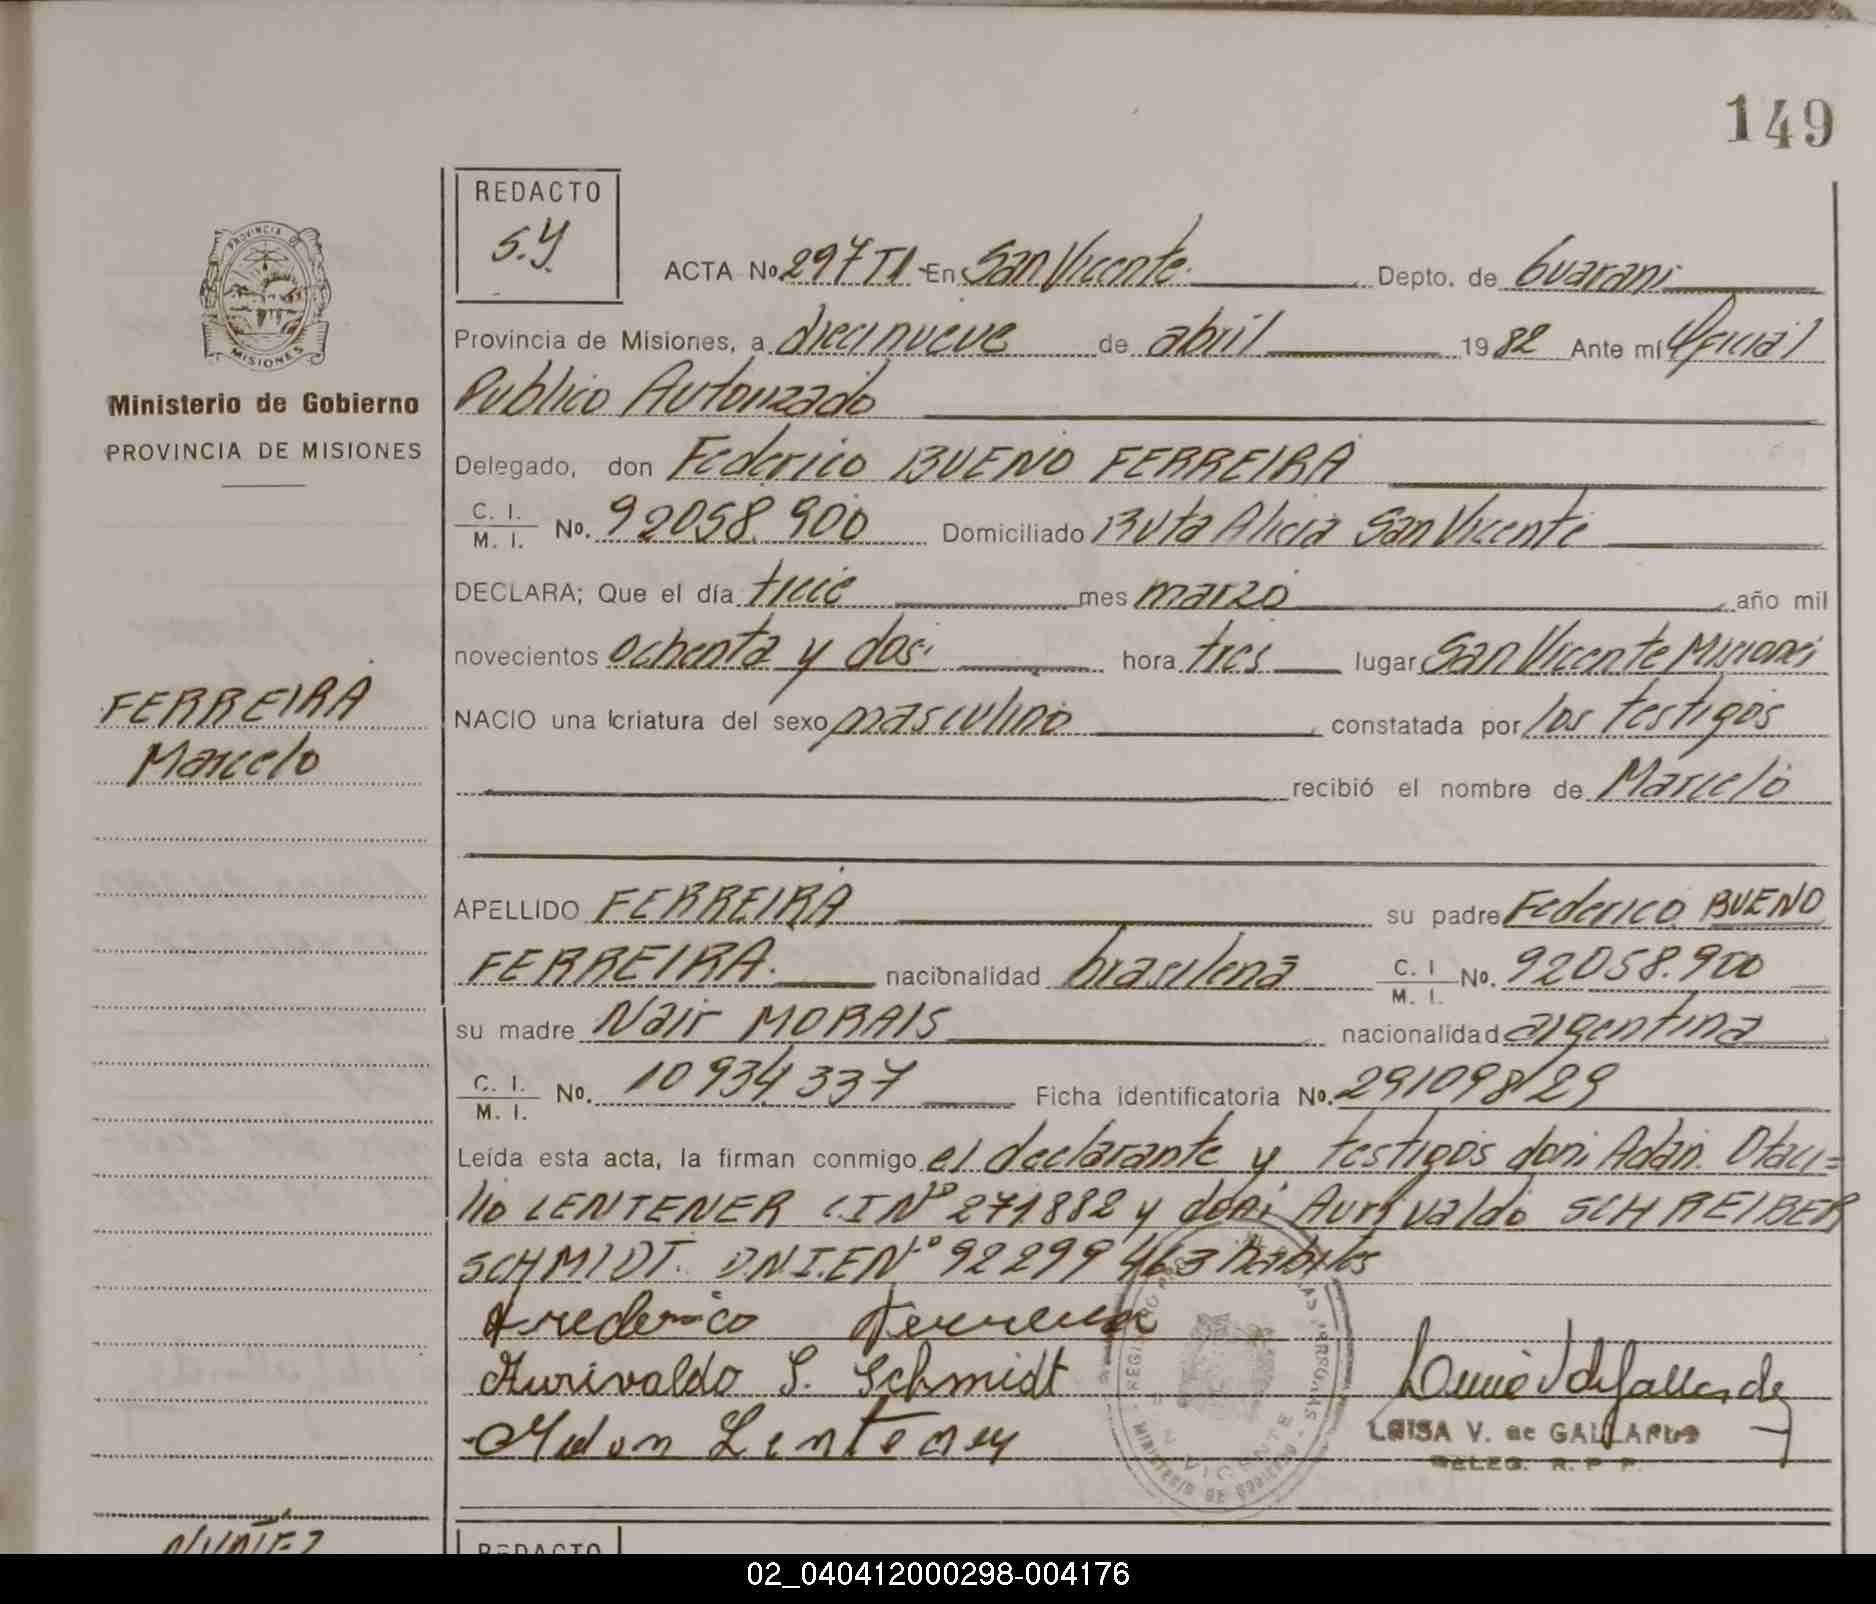 149
REDACTO
S.Y.
PROVINCIA DE
MISIONES
ACTA No. 297 TI En San Vicente Depto. de Guarani
Provincia de Misiones, a diecinueve de abril 1982 Ante mí Oficial
Ministerio de Gobierno
Publico Autorizado
PROVINCIA DE MISIONES
Delegado, don Federico BUENO FERREIRA
C. I. / M. I. No. 92058.900 Domiciliado Ruta Alicia San Vicente
DECLARA; Que el día mes marzo año mil
novecientos ochenta y dos. hora tres lugar San Vicente Misiones
FERREIRA
NACIO una criatura del sexo masculino constatada por los testigos
Marcelo
recibió el nombre de Marcelo
APELLIDO FERREIRA su padre Federico BUENO
FERREIRA. nacionalidad brasilena C. I. / M. I. No. 92058.900
su madre Nair MORAIS nacionalidad argentina
C. I. / M. I. No. 10934337 Ficha identificatoria No. 291098/29
Leída esta acta, la firman conmigo el declarante y testigos don Adan Otaci=
lio LENTENER C.I Nº 271882 y don Aurivaldo SCHREIBER
SCHMIDT. D.N.I.E Nº 92299463 habiles
Frederico Ferreira
Aurivaldo S. Schmidt
Adan Lentener
LUISA V. de GALLARDO
DELEG. R. P. P.
NUÑEZ
REDACTO
02_040412000298-004176